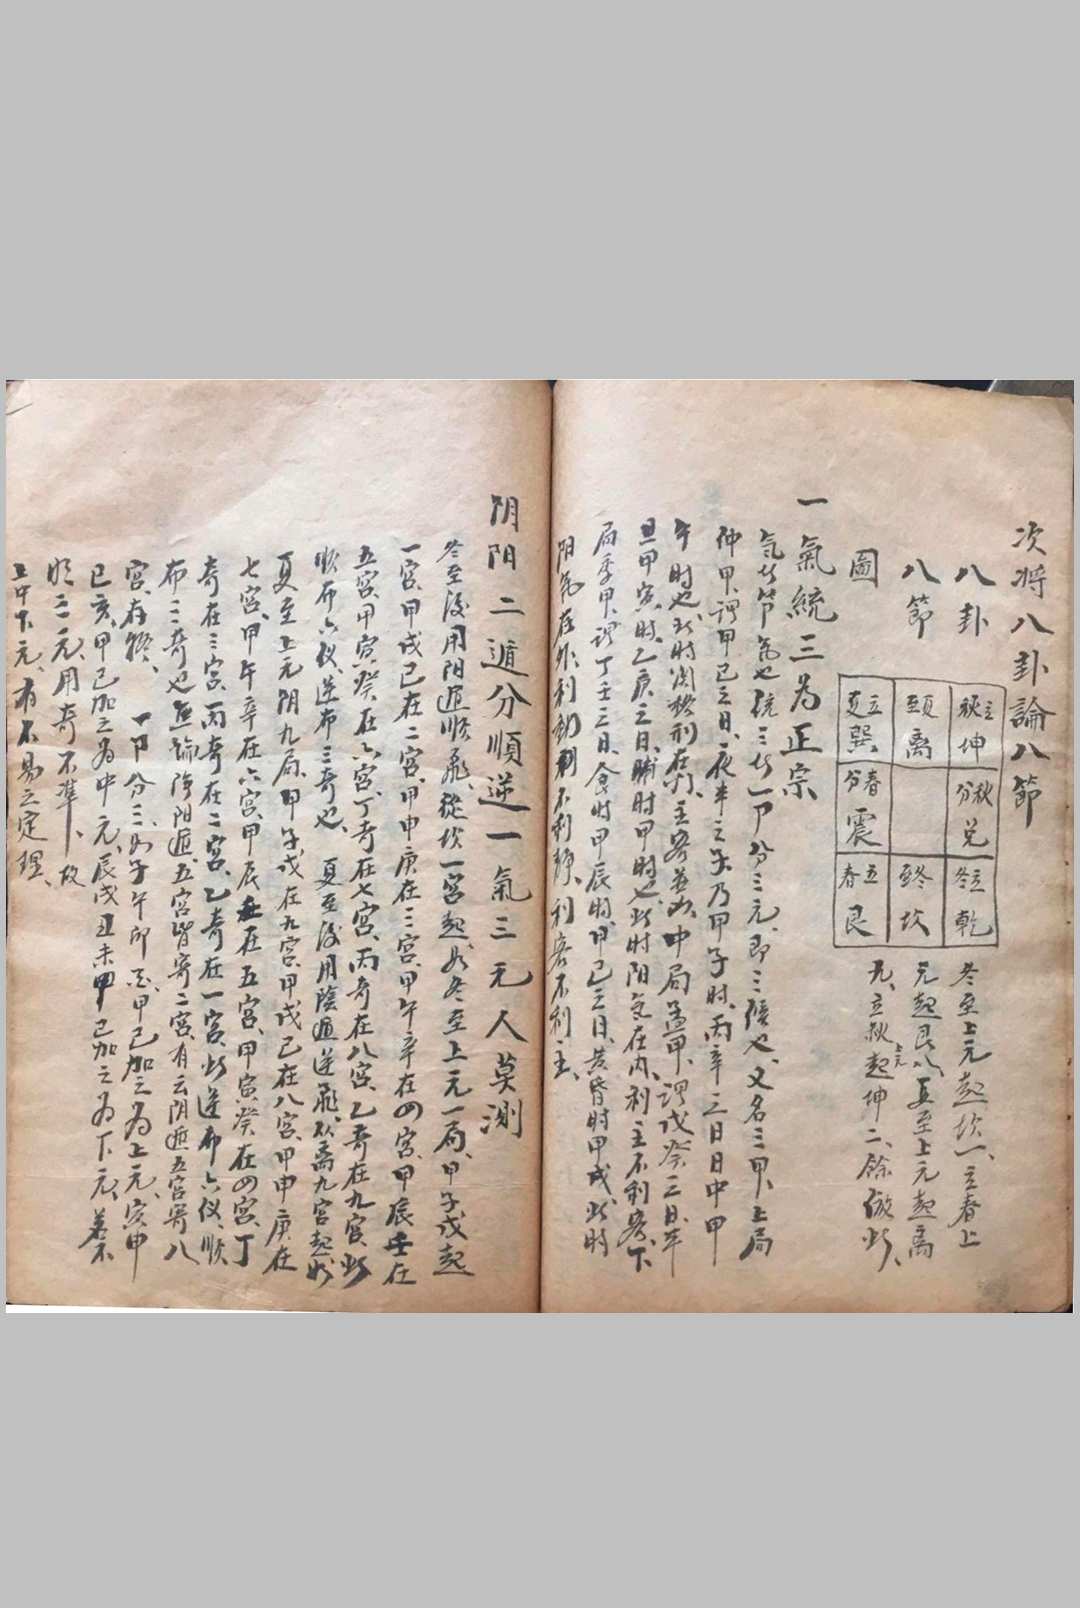 次将八卦論八節
八卦
八節
圖
立秋 坤
秋分 兑
立冬 乾
夏至 離
冬至 坎
立夏 巽
春分 震
立春 艮
冬至上元起坎一、立春上
元起艮八、夏至上元起離
九、立秋上元起坤二、餘倣此、
一氣統三為正宗
氣者節氣也、統三者一卩分三元、即三候也、又名三甲、上局
仲甲、謂甲己之日、夜半之子乃甲子时、丙辛三日日中甲
午时也、此时関格刑在门、主客並凶、中局孟甲、謂戊癸三日平
旦甲寅时、乙庚之日、晡时甲时也、此时阳气在内、利主不利客、下
局季甲、謂丁壬三日、食时甲辰时、甲己之日、黄昏时甲戌、此时
阳氣在外、利動不利静、利客不利主、
阴阳二遁分順逆一氣三元人莫測
冬至後用阳遁順飛、從坎一宫起、如冬至上元一局、甲子戊起
一宫、甲戌己在二宫、甲申庚在三宫、甲午辛在四宫、甲辰壬在
五宫、甲寅癸在六宫、丁奇在七宫、丙奇在八宫、乙奇在九宫、此
順布六仪、逆布三奇也、 夏至後用陰遁逆飛、从离九宫起、如
夏至上元阴九局、甲子戊在九宫、甲戌己在八宫、甲申庚在
七宫、甲午辛在六宫、甲辰壬在五宫、甲寅癸在四宫、丁
奇在三宫、丙奇在二宫、乙奇在一宫、此逆布六仪、順
布三奇也、無論陰阳遁、五宫皆寄二宫、有云阴遁五宫寄八
宫、存疑、 一卩分三、如子午卯酉、甲己加之為上元、寅申
巳亥、甲己加之為中元、辰戌丑未、甲己加之為下元、若不
明三元、用奇不準、故
上中下元、有不易之定理、